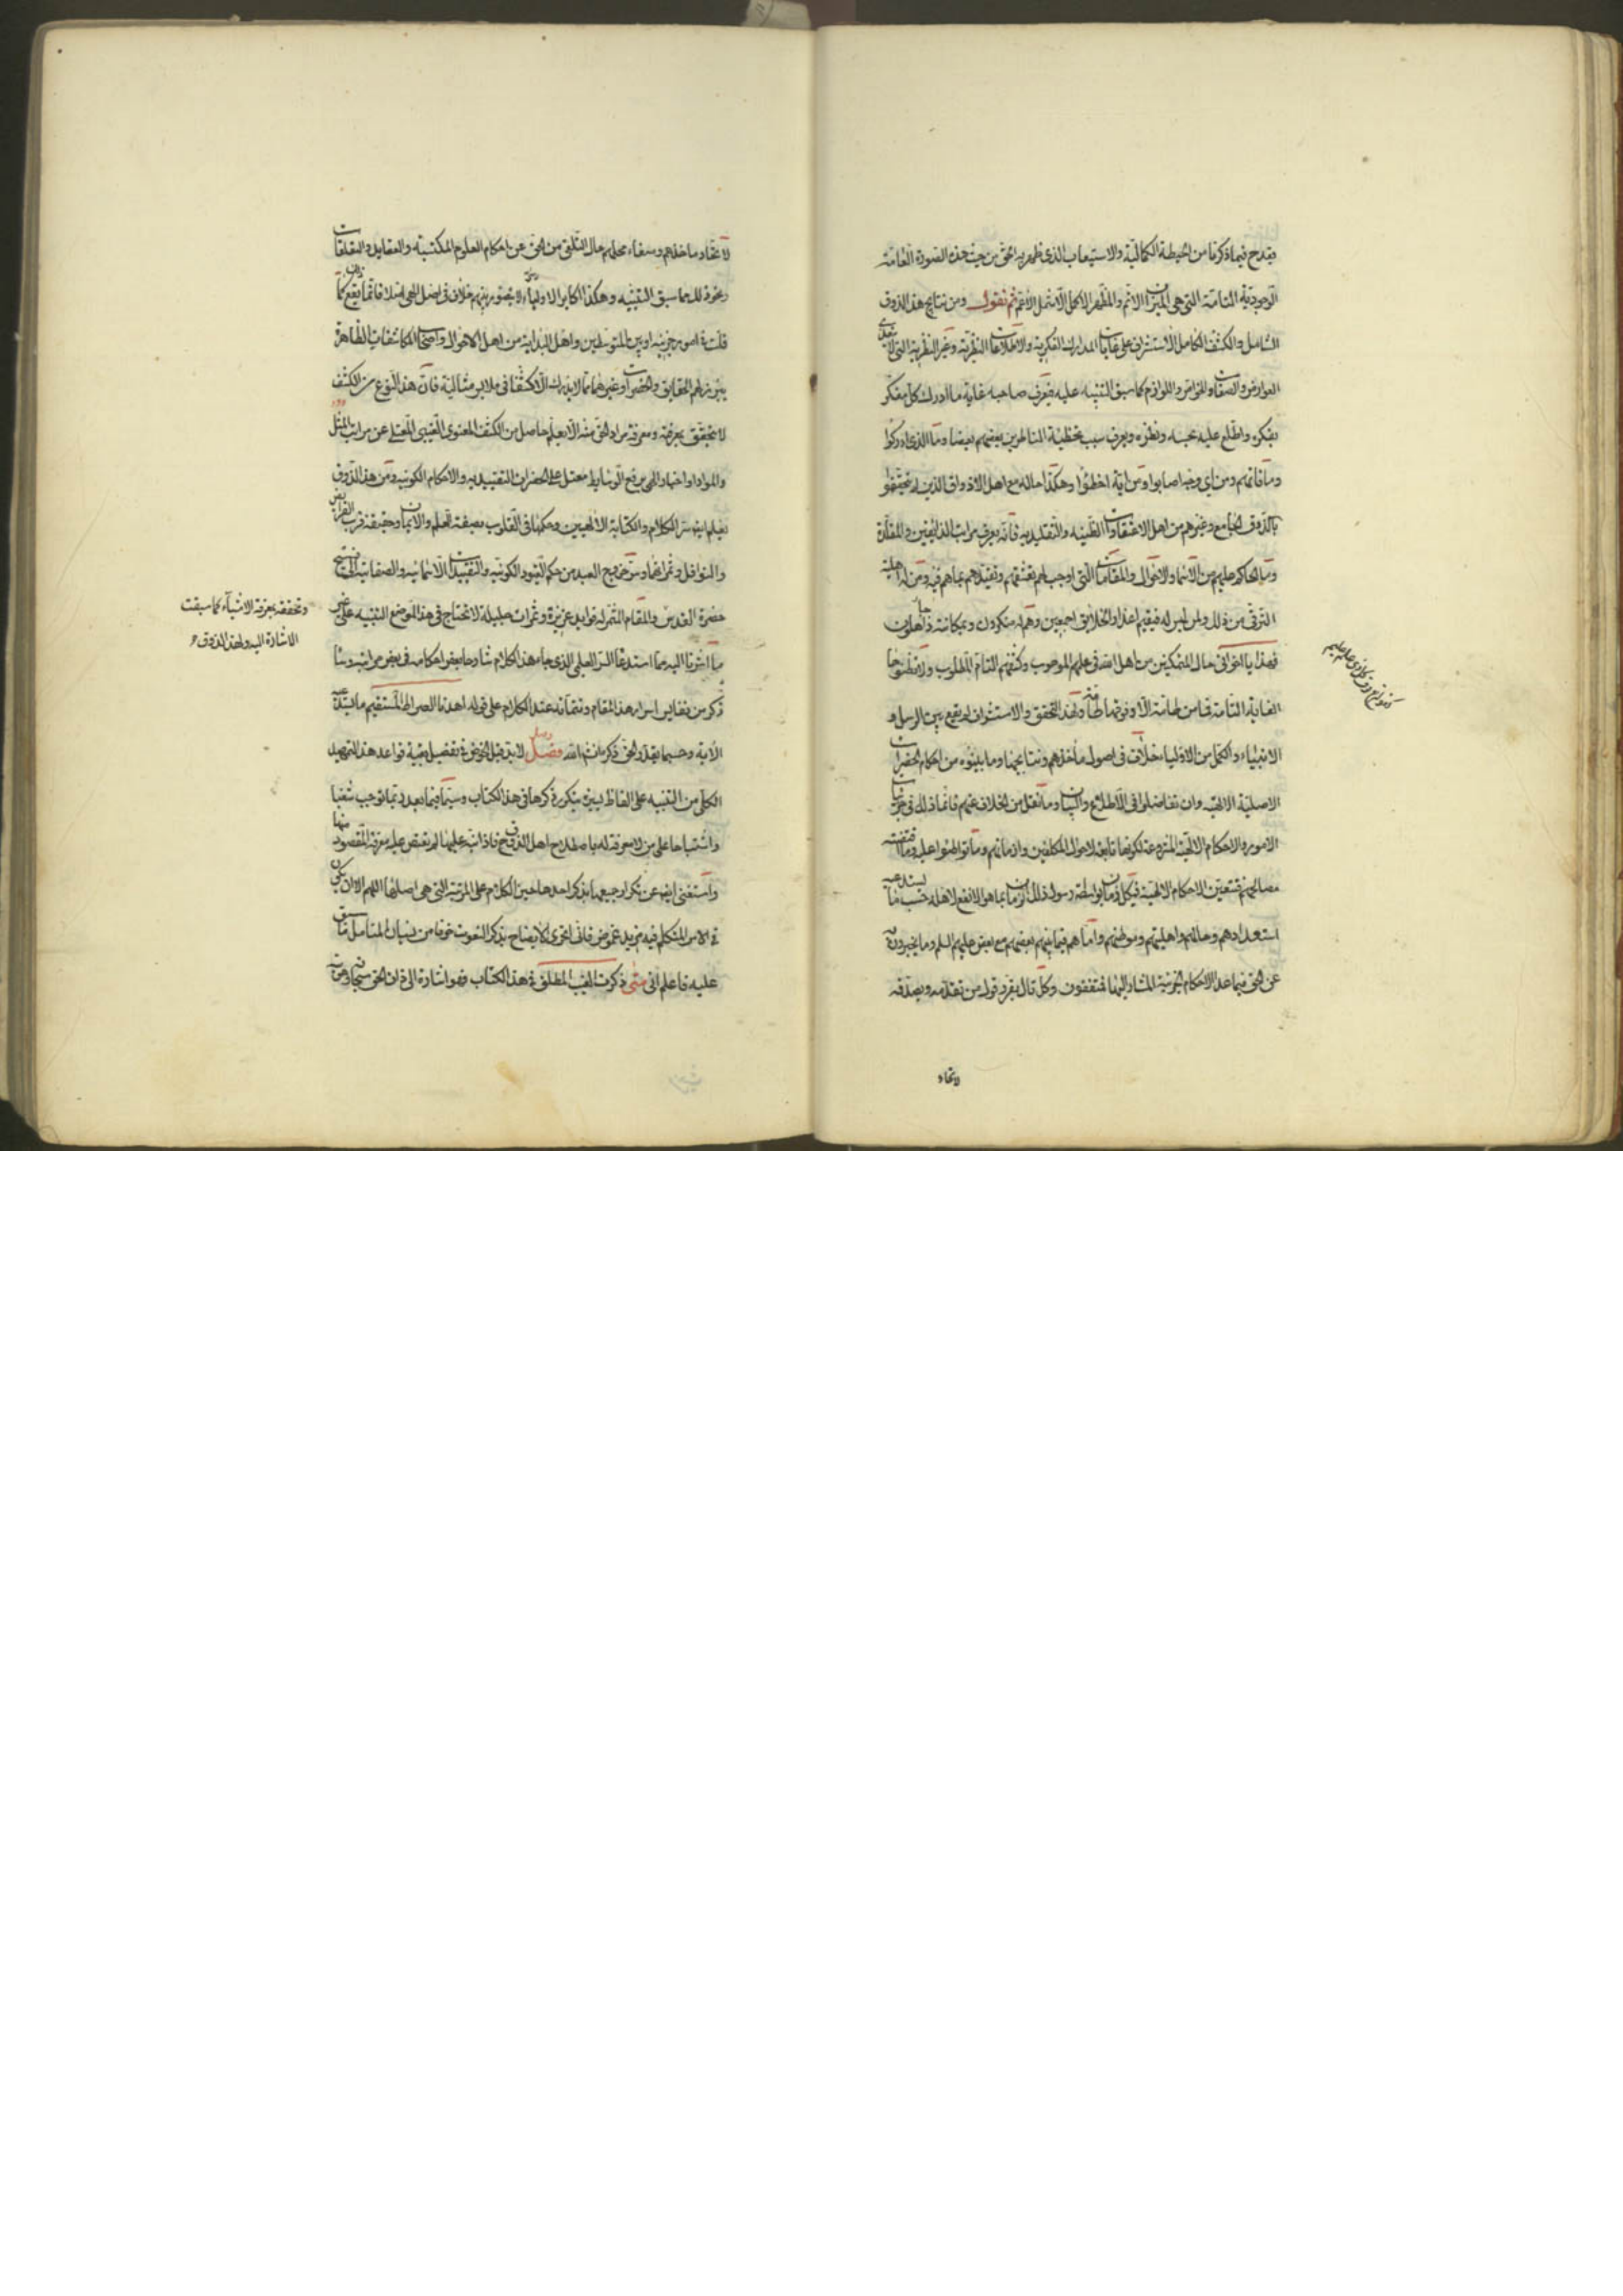 يقدح فيما ذكرنا من الحيطة الكمالية والاستيعاب الذي ظهر به الحق من حيث هذه الصورة العامة
الوجودية التامة التي هي الميزان الاتم والمظهر الاكمل الاشمل الاعم ثم نقول ومن نتايج هذا الذوق
الشامل والكشف الكامل الاستشراف على غايات المدارك الفكرية والاطلاعات النظرية وغير النظرية التي لا تتعدى
العوارض والصفات والخواص واللوازم كما سبق التنبيه عليه فيعرف صاحبه غاية ما ادرك كل مفكر
بفكره واطلع عليه بحسه ونظره ويعرف سبب تخطئة الناظرين بعضهم بعضا وما الذي ادركوا
وما فاتهم ومن اي وجه اصابوا ومن اية اخطئوا وهكذا حاله مع اهل الاذواق الذين لم يتحققوا
بالذوق الجامع وغيرهم من اهل الاعتقادات الظنية والتقليدية فانه يعرف مراتب الذايقين والمقلدة
وما الحاكم عليهم من الاسماء والاحوال والمقامات التي اوجب لهم تعشقهم وتقيدهم بما هم فيه ومن له اهلية
الترقي من ذلك ومن ليس له فيقيم اعذار الخلايق اجمعين وهم له منكرون وبمكانته جاهلون
فهذا يا اخواني حال المتمكنين من اهل الله في علمهم الموهوب وكشفهم التام المطلوب ولا تظنوها
الغاية التامة فما من طامة الا وفوقها طامة ولهذا التحقق والاستشراف لم يقع بين الرسل و
الانبياء والكمل من الاولياء خلاف في اصول مأخذهم ونتايجها وما بينوه من احكام الحضرات
الاصلية الالهية وان تفاضلوا في الاطلاع والبيان وما نقل من الخلاف عنهم فانما ذلك في جزئيات
الامور والاحكام الالهية المشروعة لكونها تابعة لاحوال المكلفين وازمانهم وما تواطئوا عليه وما اقتضته
مصالحهم فتتعين الاحكام الالهية في كل زمان بواسطة رسول ذلك الزمان بما هو الانفع لاهله حسب ما يستدعيه
استعدادهم وحالهم واهليتهم وموطنهم واما هم فيما بينهم بعضهم مع بعض عليهم السلم وما يخبرون به
عن الحق فيما عدا الاحكام الجزئية المشار اليها فمتفقون وكل تال يقرر قول من تقدمه ويصدقه
لاتحاد
لاتحاد مأخذهم وصفاء محلهم حال التلقي من الحق عن احكام العلوم المكتسبة والعقايد والتعلقات
ونحو ذلك مما سبق التنبيه وهكذا اكابر الاولياء لا يتصور بينهم خلاف في اصل الهي اصلا فانما يقع كما
قلت في امور جزئية او بين المتوسطين واهل البداية من اهل الاحوال واصحاب المكاشفات الظاهرة
يبرز لهم الحقايق والحضرات وغيرهما مما لا يدرك الا كشفا في ملابس مثالية فان هذا النوع من الكشف
لا يتحقق بمعرفته ومعرفة مراد الحق منه الا بعلم حاصل من الكشف المعنوي الغيبي المعتلي عن مراتب المثل
والمواد واخبار الهي برفع الوسايط معتل على الحضرات التقييدية والاحكام الكونية ومن هذا الذوق
يعلم ايضا سر الكلام والكتابة الالهيين وحكمها في القلوب بصفة العلم والايمان وحقيقة قرب الفرايض
والنوافل وثمراتهما وسر خروج العبد من حكم القيود الكونية والتقييدات الاسمائية والصفاتية الى فسيح
حضرة القدس وتحققه بمعرفة الاشياء كما سبقت
الاشارة اليه ولهذا الذوق و
والمقام المثمر له فوايد عزيزة وثمرات جليلة لا تحتاج في هذا الموضع التنبيه على غير
ما اشرنا اليه مما استدعاه السر العلمي الذي جاء هذا الكلام شارحا بعض احكامه في بعض مراتبه وسا
ذكر من نفايس اسرار هذا المقام وتتماته عند الكلام على قوله اهدنا الصراط المستقيم ما يستدعيه
الاية وحسبما يقدره الحق ذكره ان شاء الله فصل لا بد قبل الخوض في تفصيل بقية قواعد هذا التمهيد
الكلي من التنبيه على الفاظ يسيرة يتكرر ذكرها في هذا الكتاب وسيما فيما بعد ربما توجب شغبا
واشتباها على من لا معرفة له باصطلاح اهل الذوق فاذا نبه عليها لم تعتص عليه معرفة المقصود منها
واستغنى ايضا عن تكرار جميعها بذكر احدها حين الكلام على المرتبة التي هي اصلها اللهم الا ان يكون
في الامر المتكلم فيه مزيد غموض فاني اتحرى الايضاح بذكر النعوت خوفا من نسيان المتأمل ما سبق
عليه فاعلم اني متى ذكرت الغيب المطلق في هذا الكتاب فهو اشارة الى ذات الحق سبحانه وهويته